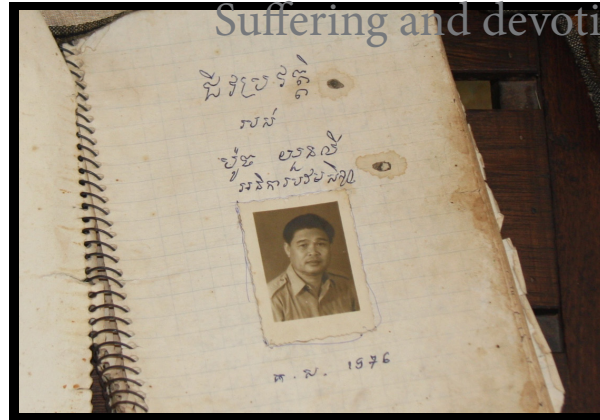 Suffering and devoti
ជីវប្រវត្តិ
របស់
ប៉ូច យួនលី
អធិការបឋមសិក្សា
គ.ស. 1976